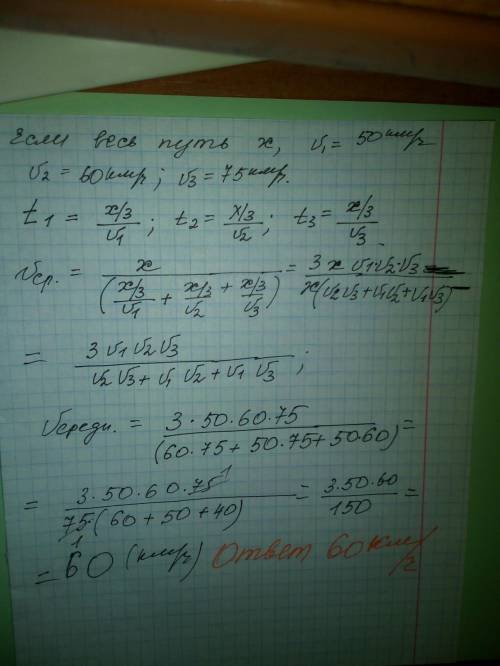 Если весь путь x, v₁ = 50 км/г
v₂ = 60 км/г; v₃ = 75 км/г.
t₁ = (x/3)/v₁; t₂ = (x/3)/v₂; t₃ = (x/3)/v₃.
vср. = x/((x/3)/v₁ + (x/3)/v₂ + (x/3)/v₃) = 3x v₁·v₂·v₃/x(v₂v₃+v₁v₂+v₁v₃)
= 3v₁v₂v₃/(v₂v₃+v₁v₂+v₁v₃);
vсредн. = 3·50·60·75/(60·75+50·75+50·60) =
= 3·50·60·75 1/75·(60+50+40) 1 = 3·50·60/150 =
= 60 (км/г) Ответ 60 км/г